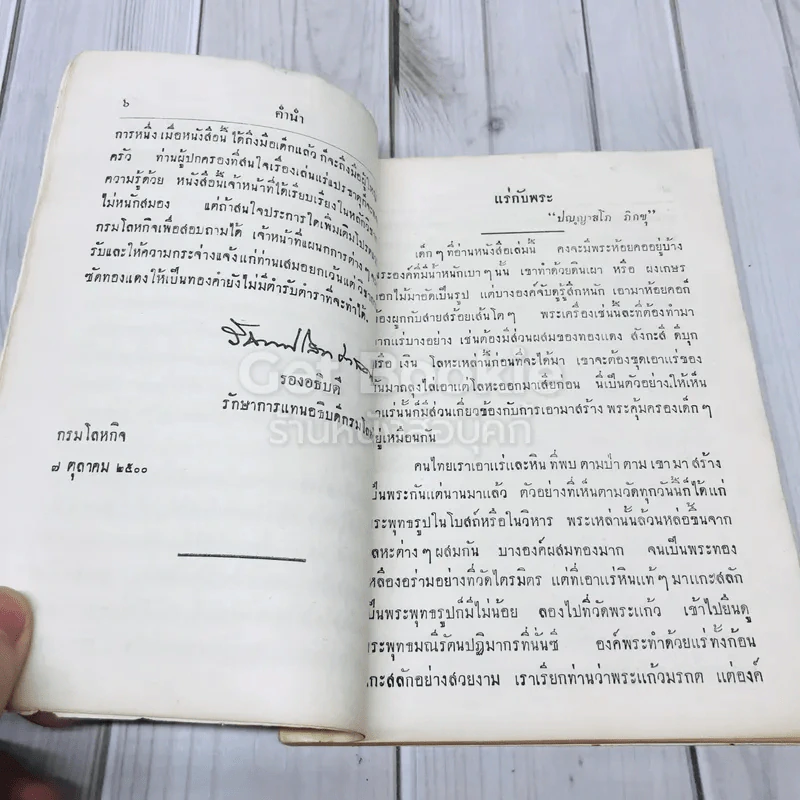 ๖
คำนำ
การหนึ่ง เมื่อหนังสือนี้ ได้ถึงมือเด็กแล้ว ก็จะถึงมือผู้
ครัว ท่านผู้ปกครองที่สนใจเรื่องเล่นแร่แปรธาตุก็
ความรู้ด้วย หนังสือนี้เจ้าหน้าที่ได้เรียบเรียงในหลักวิ
ไม่หนักสมอง แต่ถ้าสนใจประการใดเพิ่มเติมโปรด
กรมโลหกิจเพื่อสอบถามได้ เจ้าหน้าที่แผนกการต่าง ๆ
รับและให้ความกระจ่างแจ้งแก่ท่านเสมอยกเว้นแต่ วิชา
ซัดทองแดงให้เป็นทองคำยังไม่มีตำรับตำราที่จะทำได้.
รองอธิบดี
รักษาการแทนอธิบดีกรมโลห
กรมโลหกิจ
๗ ตุลาคม ๒๕๐๐
แร่กับพระ
"ปญฺญาสโภ ภิกขุ"
เด็ก ๆ ที่อ่านหนังสือเล่มนี้ คงจะมีพระห้อยคออยู่บ้าง
พระองค์ที่มีน้ำหนักเบา ๆ นั้น เขาทำด้วยดินเผา หรือ ผงเกษร
ดอกไม้มาอัดเป็นรูป แต่บางองค์จับดูรู้สึกหนัก เอามาห้อยคอก็
ต้องผูกกับสายสร้อยเส้นโต ๆ พระเครื่องเช่นนี้ละที่ต้องทำมา
จากแร่บางอย่าง เช่นต้องมีส่วนผสมของทองแดง สังกะสี ดีบุก
หรือ เงิน โลหะเหล่านี้ก่อนที่จะได้มา เขาจะต้องขุดเอาแร่ของ
มันมาถลุงไล่เอาแต่โลหะออกมาเสียก่อน นี่เป็นตัวอย่างให้เห็น
ว่าแร่นั้นก็มีส่วนเกี่ยวข้องกับการเอามาสร้าง พระคุ้มครองเด็ก ๆ
อยู่เหมือนกัน
คนไทยเราเอาแร่และหิน ที่พบ ตามป่า ตาม เขา มา สร้าง
เป็นพระกันแต่นานมาแล้ว ตัวอย่างที่เห็นตามวัดทุกวันนี้ก็ได้แก่
พระพุทธรูปในโบสถ์หรือในวิหาร พระเหล่านั้นล้วนหล่อขึ้นจาก
โลหะต่าง ๆ ผสมกัน บางองค์ผสมทองมาก จนเป็นพระทอง
เหลืองอร่ามอย่างที่วัดไตรมิตร แต่ที่เอาแร่หินแท้ ๆ มาแกะสลัก
เป็นพระพุทธรูปก็มีไม่น้อย ลองไปที่วัดพระแก้ว เข้าไปยืนดู
พระพุทธมณีรัตนปฏิมากรที่นั่นซี องค์พระทำด้วยแร่ทั้งก้อน
แกะสลักอย่างสวยงาม เราเรียกท่านว่าพระแก้วมรกต แต่องค์